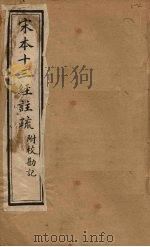 宋本十三經註疏附校勘記
mtoou.info
mtoou.info